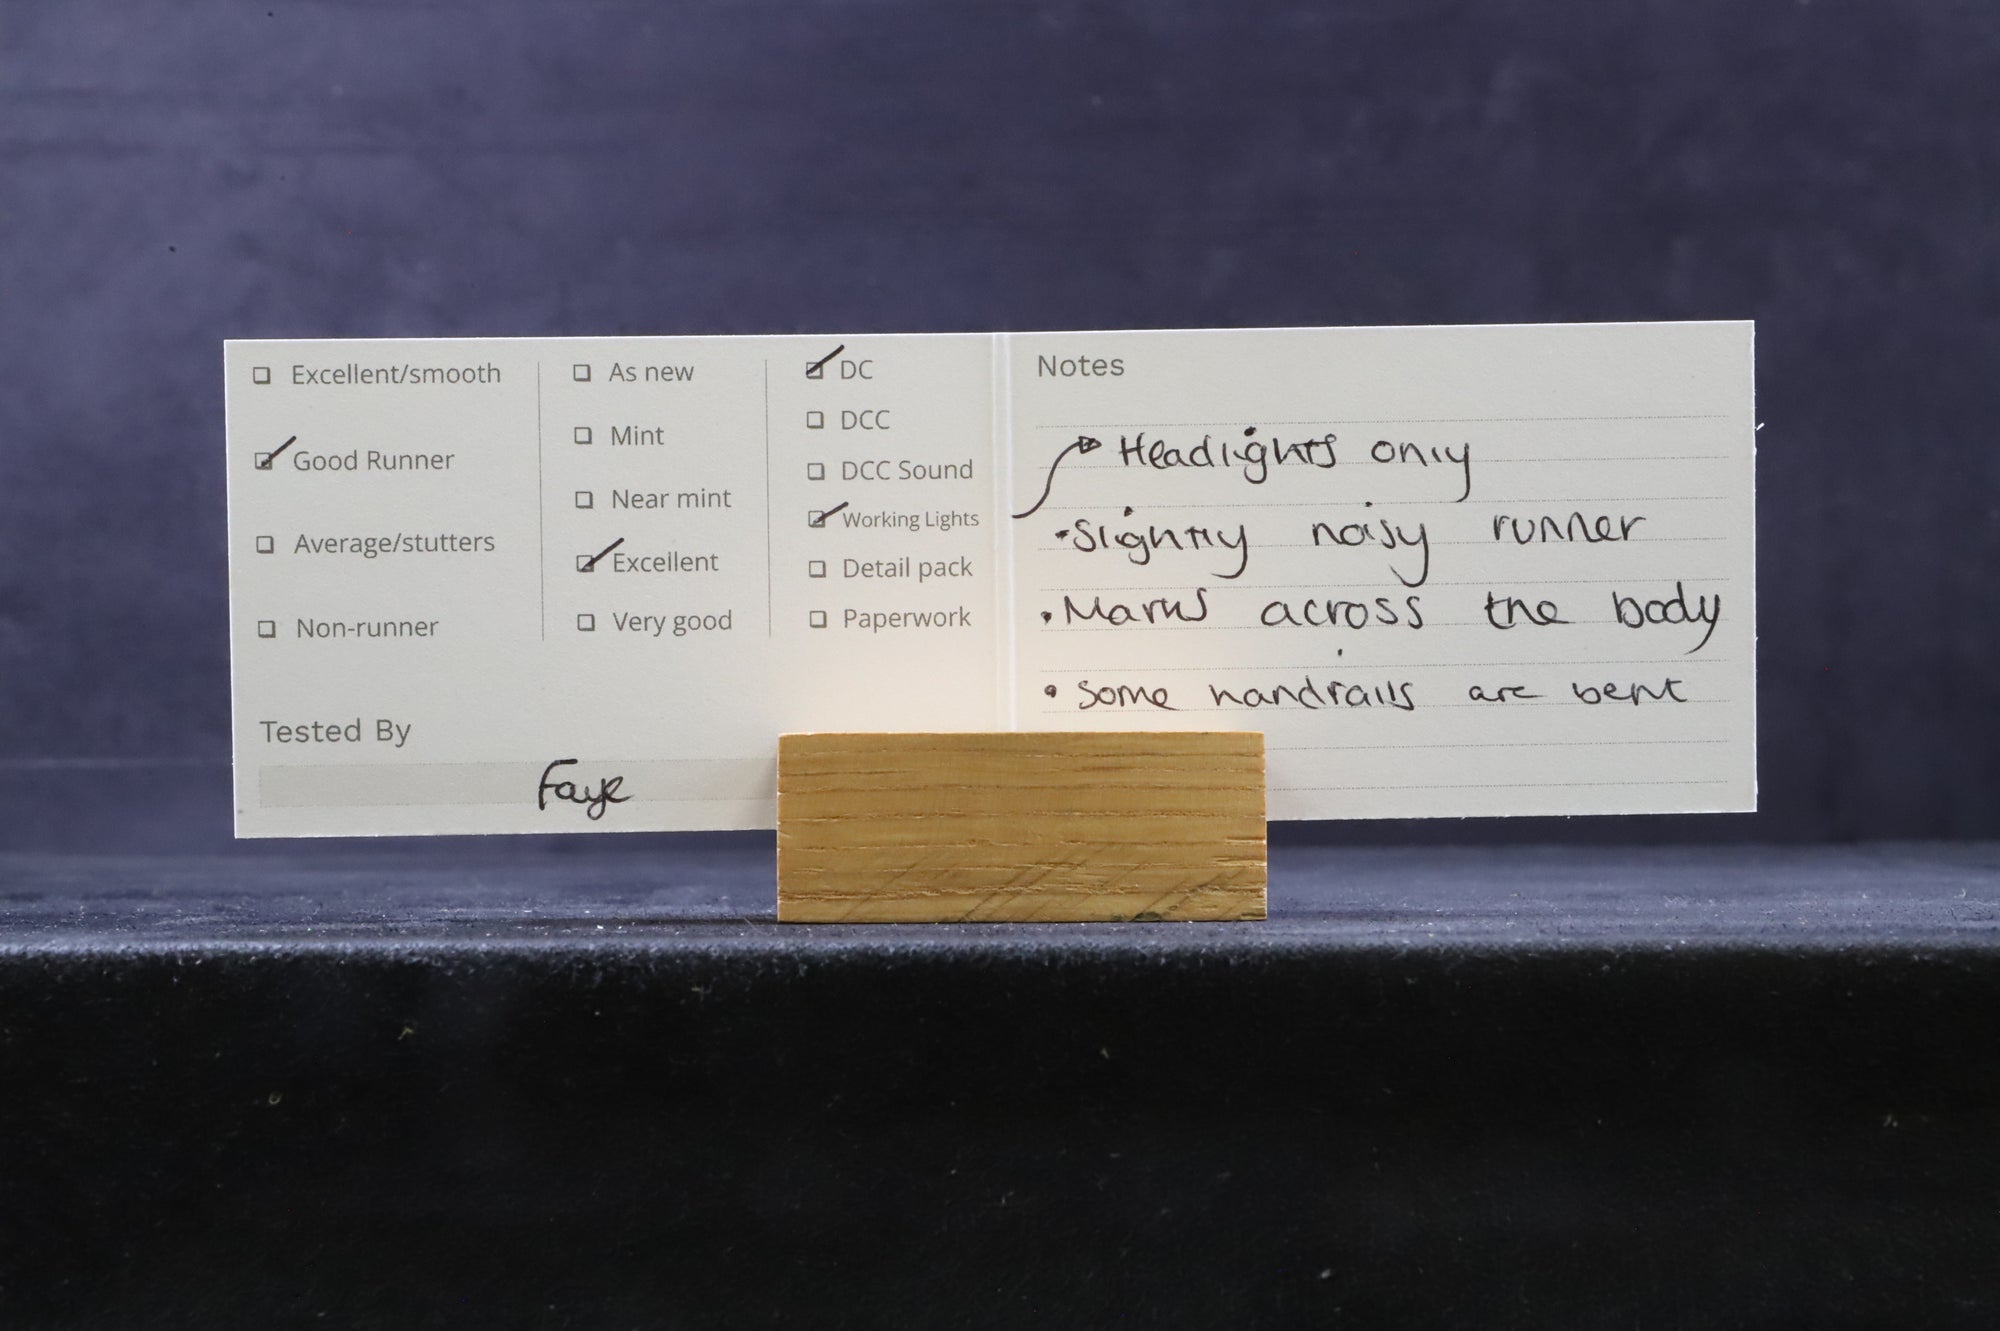 Excellent/smooth
Good Runner
Average/stutters
Non-runner
As new
Mint
Near mint
Excellent
Very good
DC
DCC
DCC Sound
Working Lights
Detail pack
Paperwork
Tested By
Faye
Notes
Headlights only
• Slightly noisy runner
• Marks across the body
• Some handrails are bent